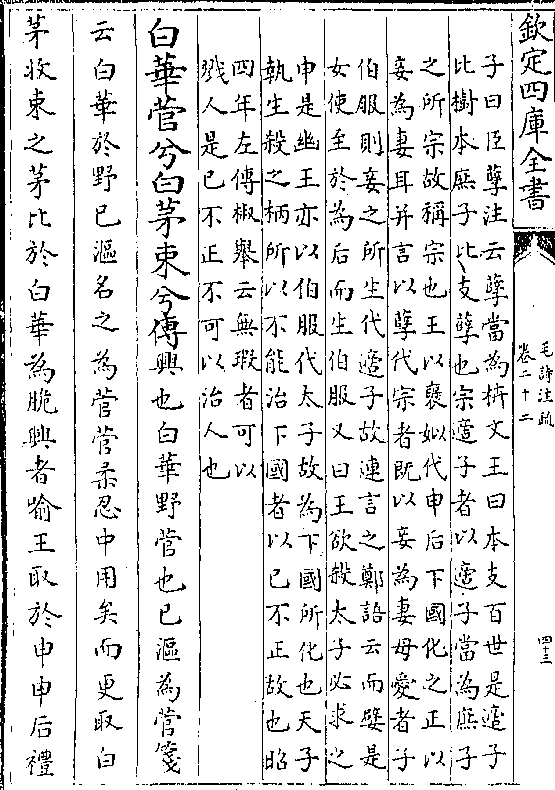 欽定四庫全書
毛詩注疏
卷二十二
四十三
子曰臣孽注云孽當為枿文王曰本支百世是適子
比樹本庶子比支孽也宗適子者以適子當為庶子
之所宗故稱宗也王以褒姒代申后下國化之正以
妾為妻耳并言以孽代宗者既以妾為妻母愛者子
伯服則妾之所生代適子故連言之鄭語云而嬖是
女使至於為后而生伯服又曰王欲殺太子必求之
申是幽王亦以伯服代太子故為下國所化也天子
執生殺之柄所以不能治下國者以已不正故也昭
四年左傳椒舉云無瑕者可以
戮人是已不正不可以治人也
白華菅兮白茅束兮傳興也白華野菅也已漚為菅箋
云白華於野已漚名之為菅菅柔忍中用矣而更取白
茅收束之茅比於白華為脆興者喻王取於申申后禮